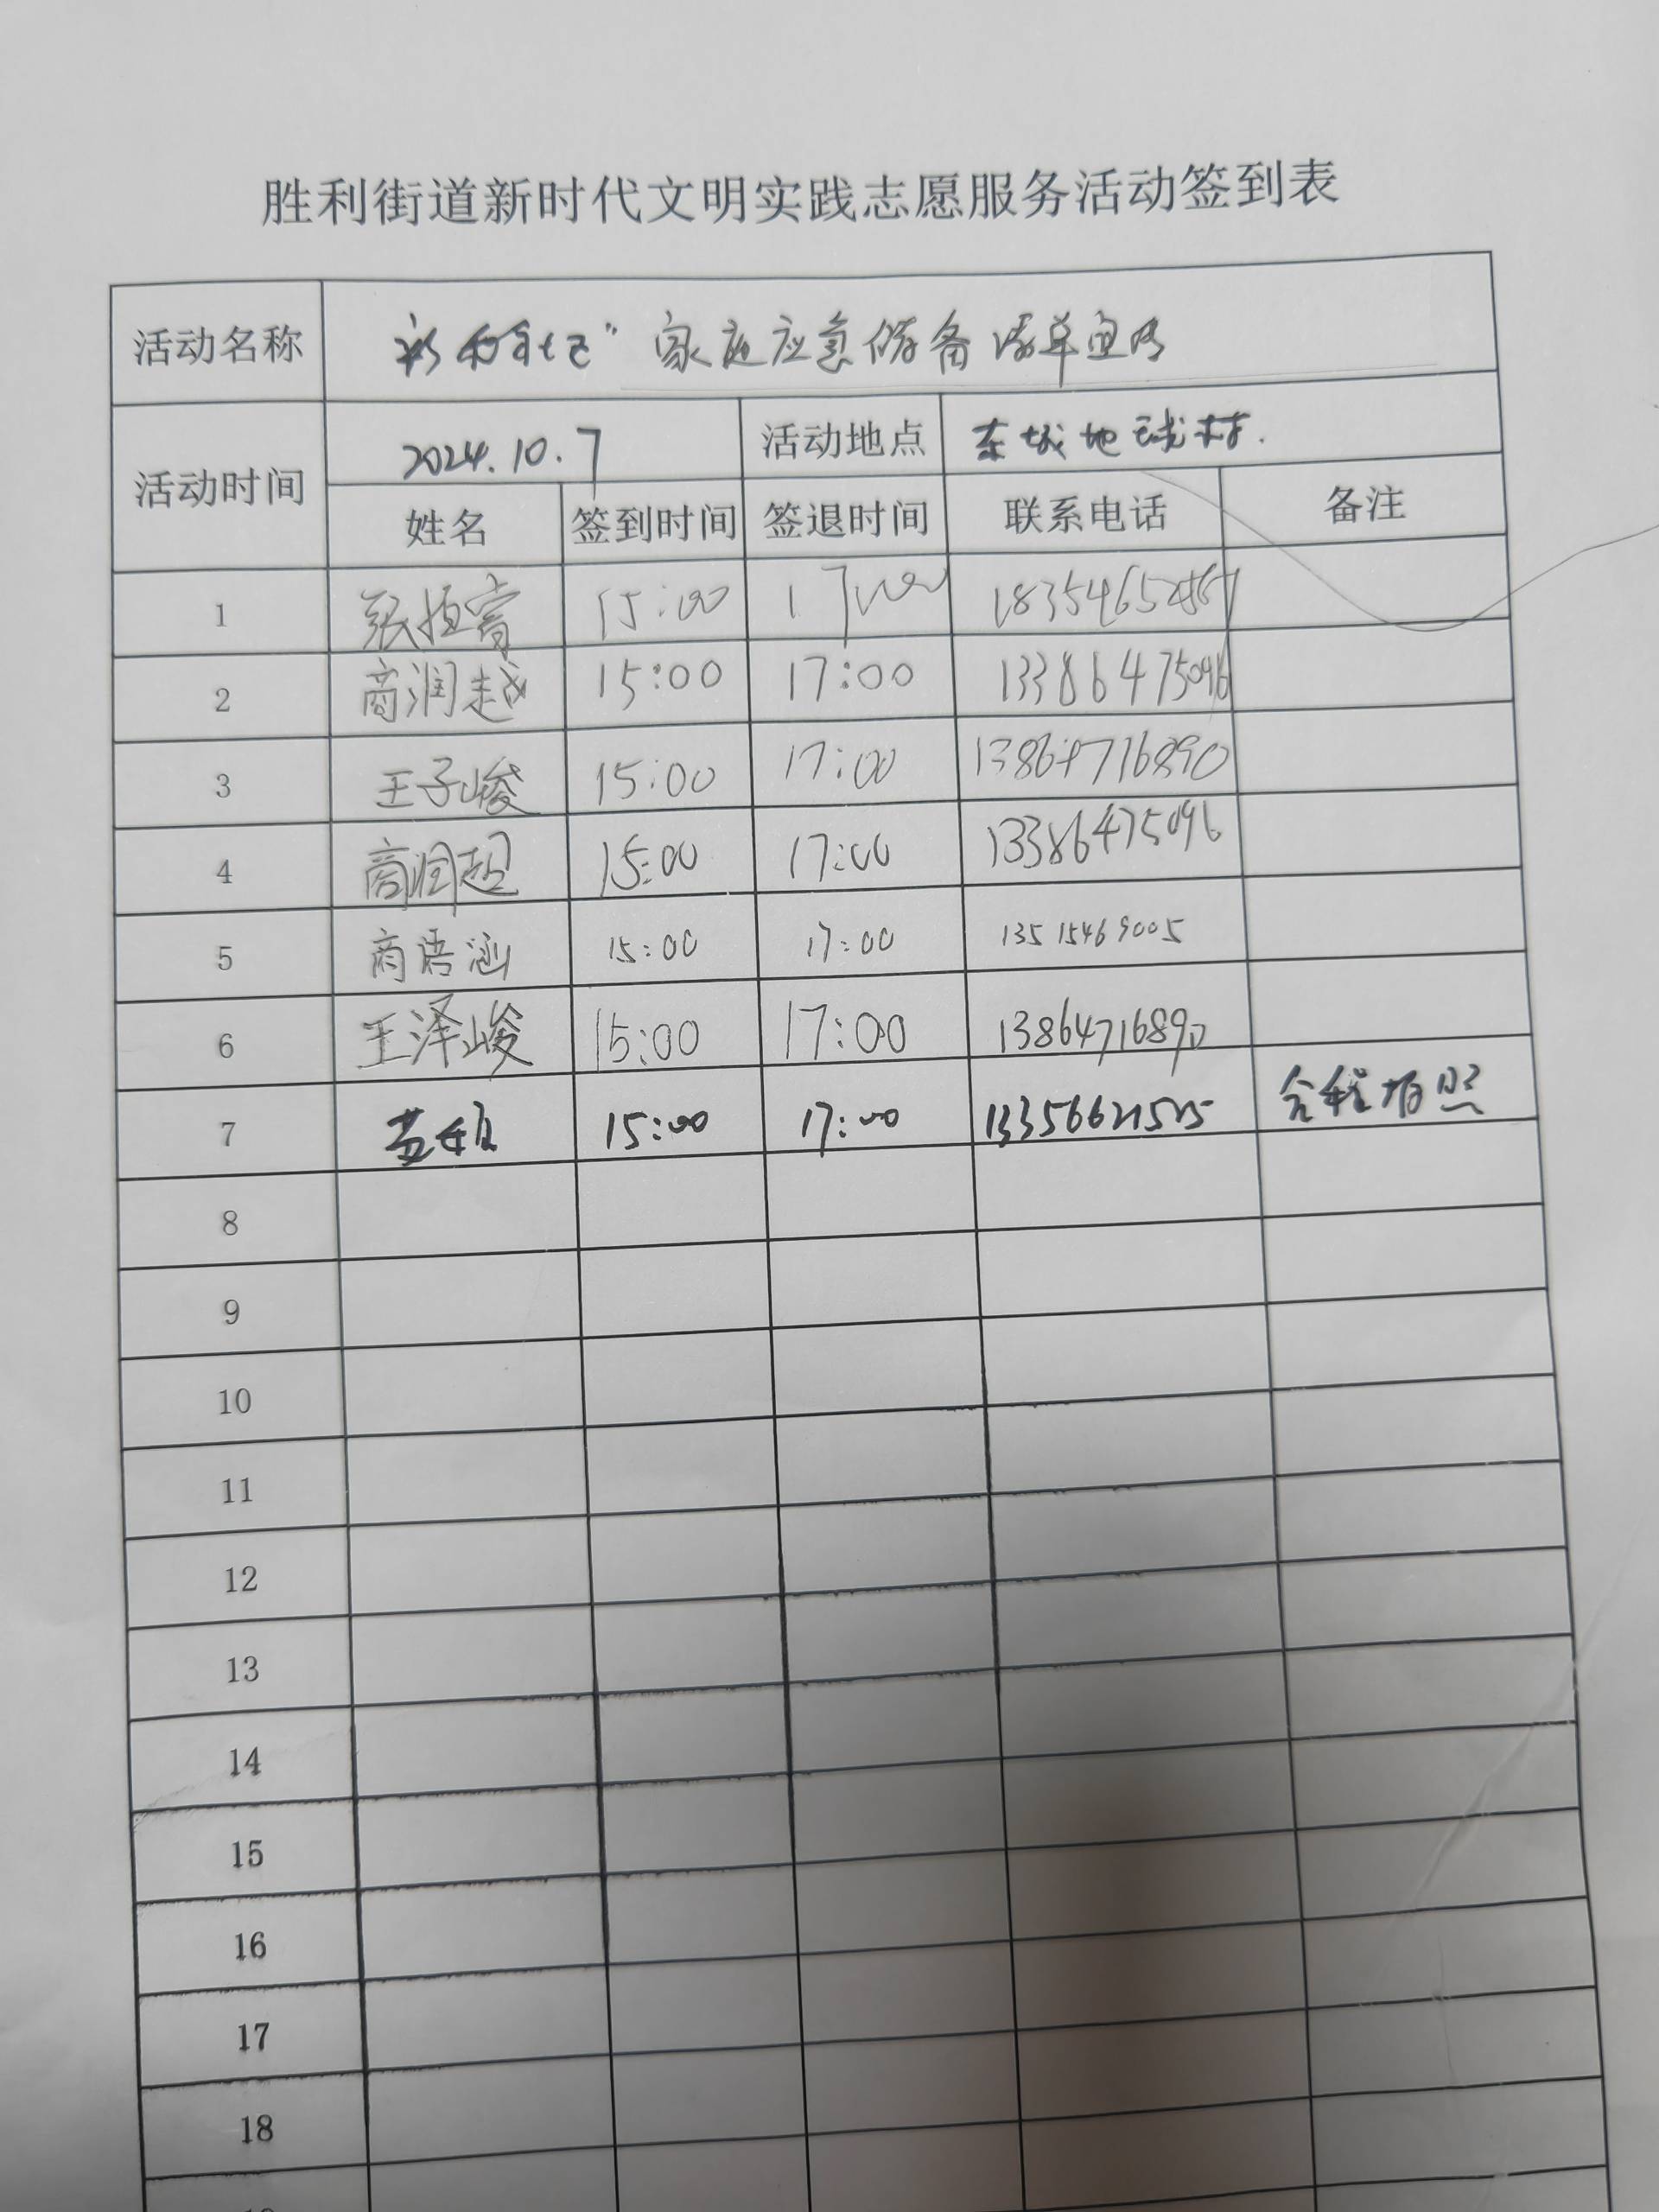 胜利街道新时代文明实践志愿服务活动签到表
活动名称 家庭应急储备清单宣传
活动时间 2024.10.7 活动地点 东城地球村.
姓名 签到时间 签退时间 联系电话 备注
1 张恒睿 15:00 17:00
2 商润越 15:00 17:00 13386475096
3 王子峻 15:00 17:00 13864716890
4 商润超 15:00 17:00 13386475096
5 商语涵 15:00 17:00 13515469005
6 王泽峻 15:00 17:00 13864716890
7 15:00 17:00 全程拍照
8
9
10
11
12
13
14
15
16
17
18